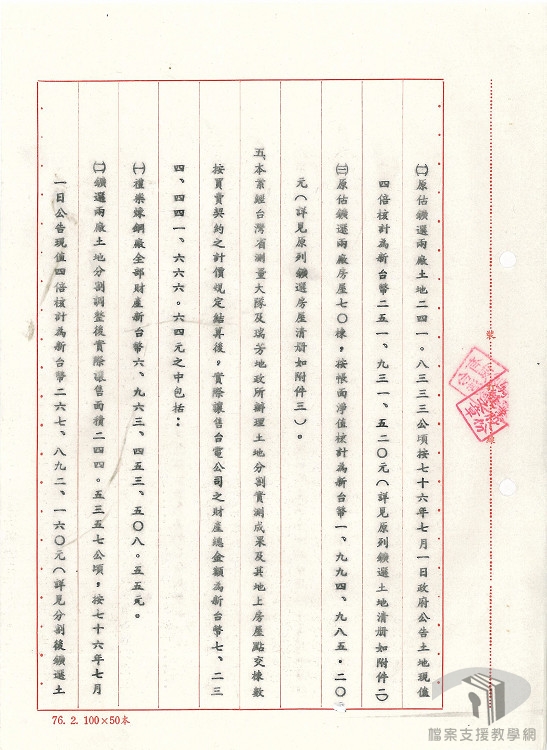 ㈡原估鑛選兩廠土地二四一。八三三三公頃按七十六年七月一日政府公告土地現值
四倍核計為新台幣二五一、九三一、五二〇元(詳見原列鑛選土地清册如附件二)
㈢原估鑛選兩廠房屋七〇棟,按帳面淨值核計為新台幣一、九九四、九八五.二〇
元(詳見原列鑛選房屋清册如附件三)。
五、本業經台灣省測量大隊及瑞芳地政所辦理土地分割實測成果及其地上房屋點交棟數
按買賣契約之計價規定結算後,實際讓售台電公司之財產總金額為新台幣七、二三
四、四四一、六六六。六四元之中包括:
㈠禮樂煉銅廠全部財產新台幣六、九六三、四五三、五〇八。五五元。
㈡鑛選兩廠土地分割調整後實際讓售面積二四四。五三五七公頃,按七十六年七月
一日公告現值四倍核計為新台幣二六七、八九二、一六〇元(詳見分割後鑛選土
號
線
76. 2. 100×50本
檔案支援教學網